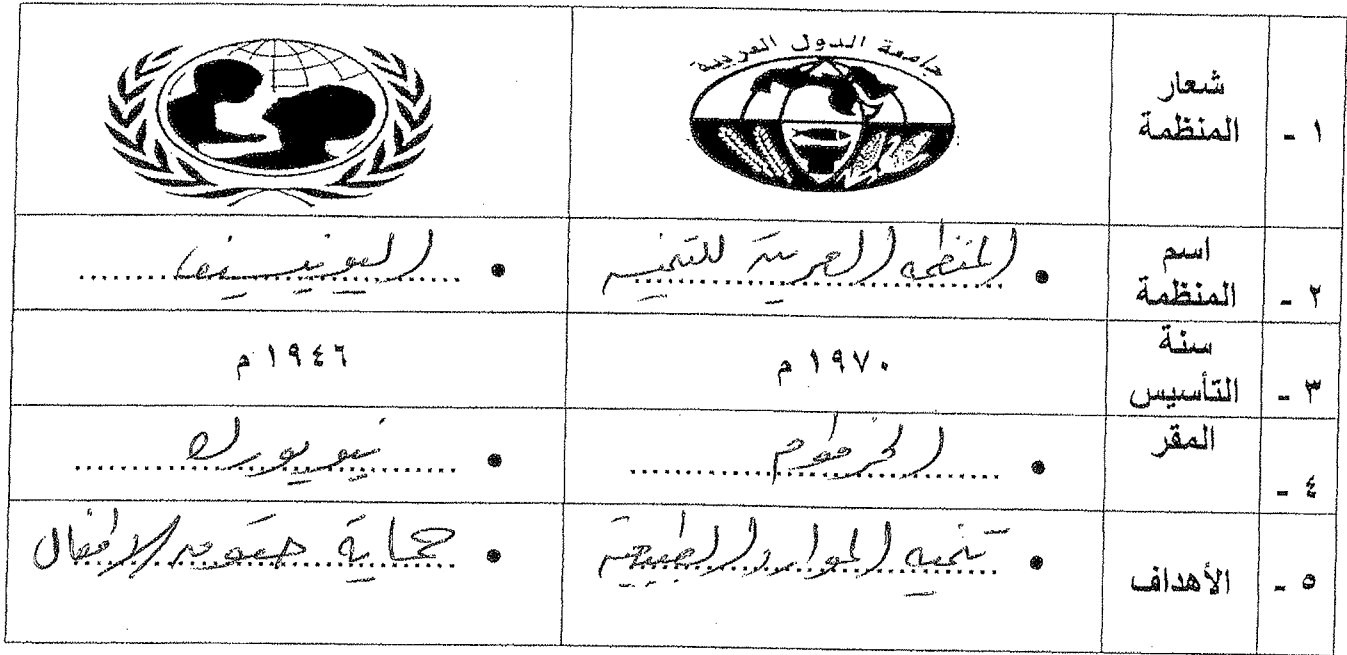 جامعة الدول العربية
١ - شعار المنظمة
٢ - اسم المنظمة • المنظمة العربية للتنمية • اليونيسيف
٣ - سنة التأسيس ١٩٧٠ م ١٩٤٦ م
٤ - المقر • الخرطوم • نيويورك
٥ - الأهداف • تنميه الموارد الطبيعية • حماية حقوق الاطفال